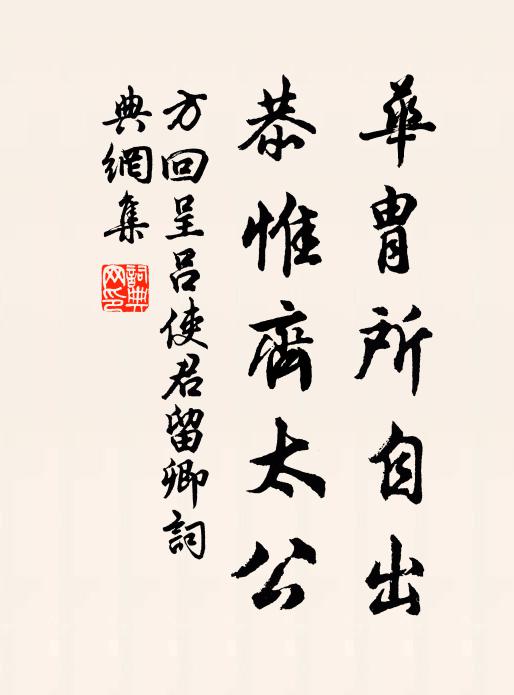 華胄所自出
恭惟齊太公
方回呈吕使君留卿詞
典網集
詞典
网印